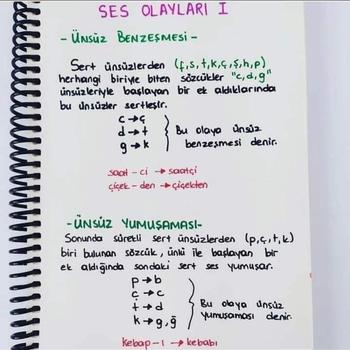 SES OLAYLARI I
- ÜNSÜZ BENZEŞMESİ -
Sert ünsüzlerden (f,s,t,k,ç,ş,h,p)
herhangi biriyle biten sözcükler "c,d,g"
ünsüzleriyle başlayan bir ek aldıklarında
bu ünsüzler sertleşir.
c→ç
d→t
g→k
Bu olaya ünsüz
benzeşmesi denir.
saat - ci → saatçi
çiçek - den → çiçekten
-ÜNSÜZ YUMUŞAMASI-
Sonunda sürekli sert ünsüzlerden (p,ç,t,k)
biri bulunan sözcük, ünlü ile başlayan bir
ek aldığında sondaki sert ses yumuşar.
p→b
ç→c
t→d
k→g,ğ
Bu olaya ünsüz
yumuşaması denir.
kebap-ı → kebabı